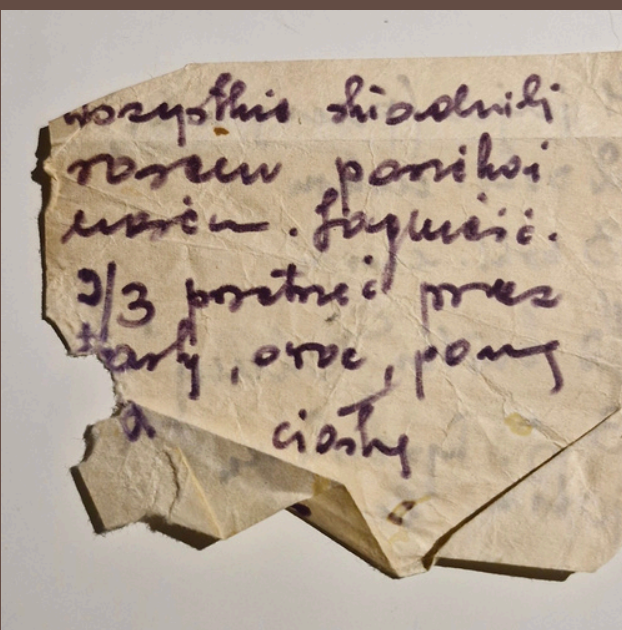 wszystkie składniki
razem posiekać
nożem. Zagnieść.
2/3 posztrzeć przez
tarkę, owoc, pong
a ciastkę